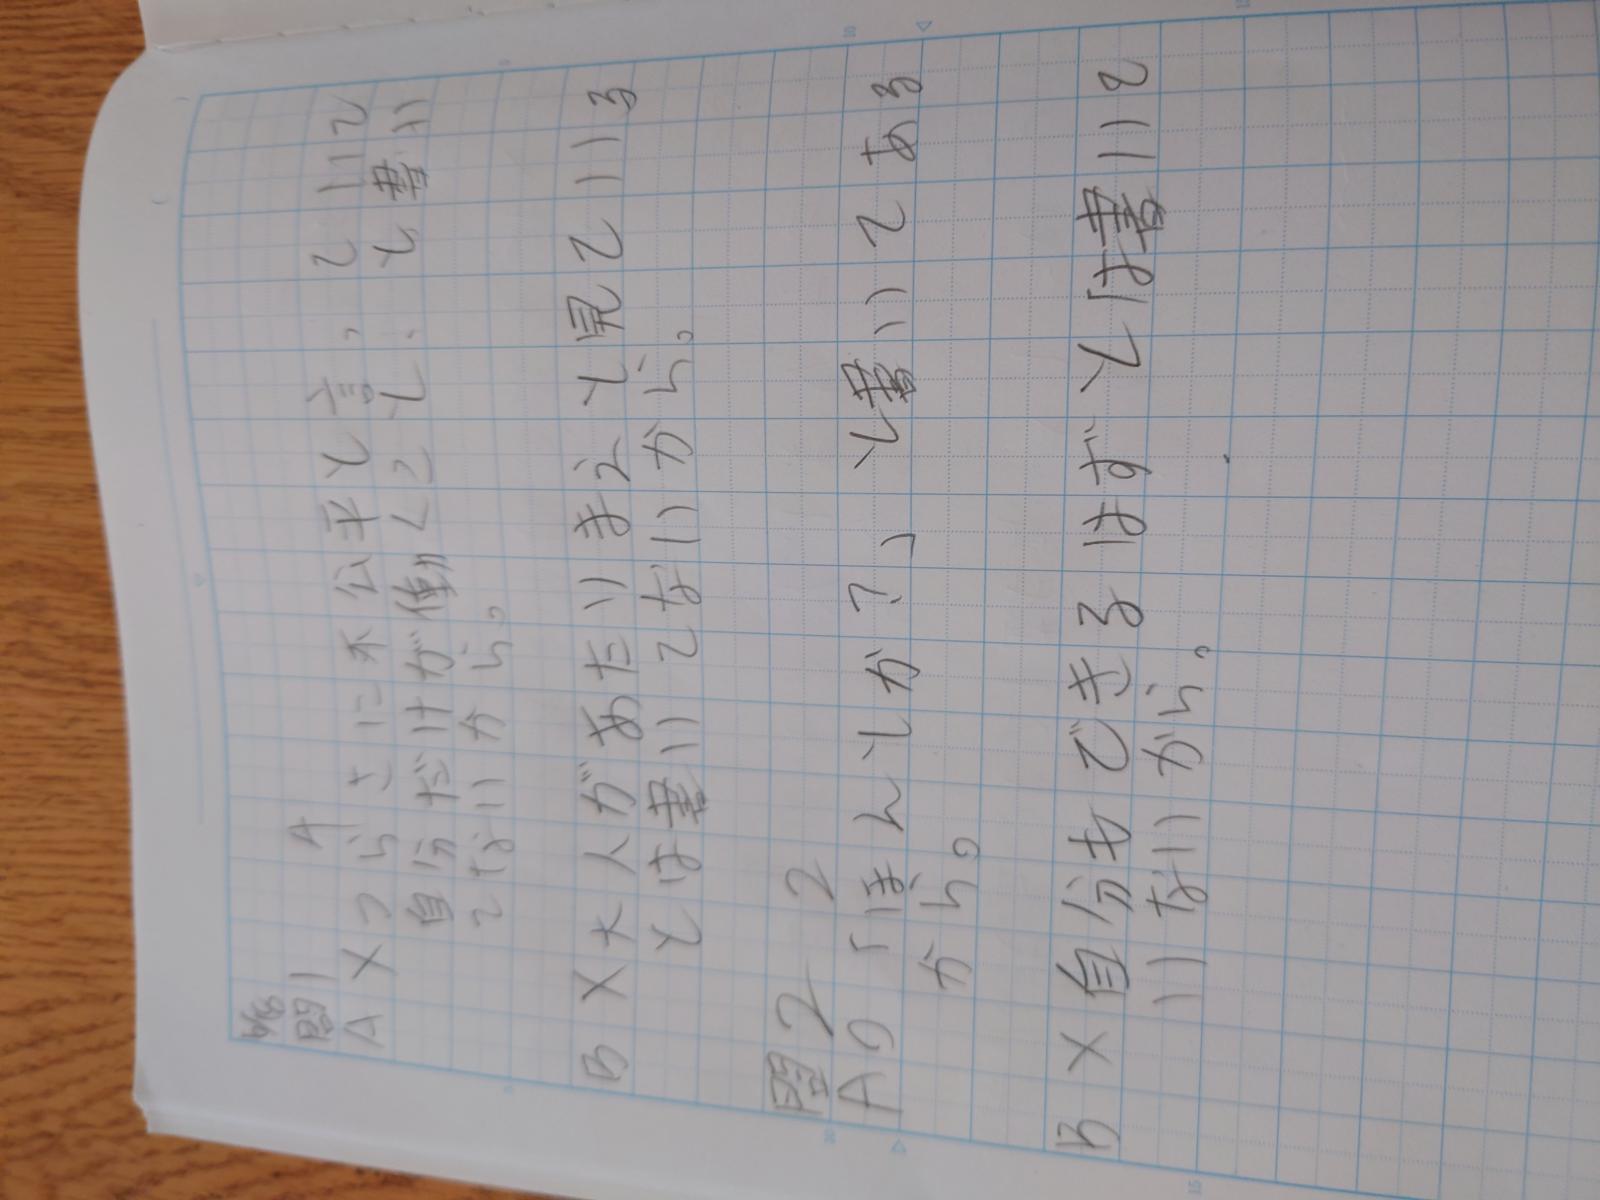 6/8
問1 4
A ×つらさに不公平と言。ていて
自分だけが働くこと、と書い
てないから。
B ×大人があたりまえと見ている
とは書いてないから。
問2 2
A ○「ほんとか?」と書いてある
から。
B ×自分もできるはずとは書いて
いないから。